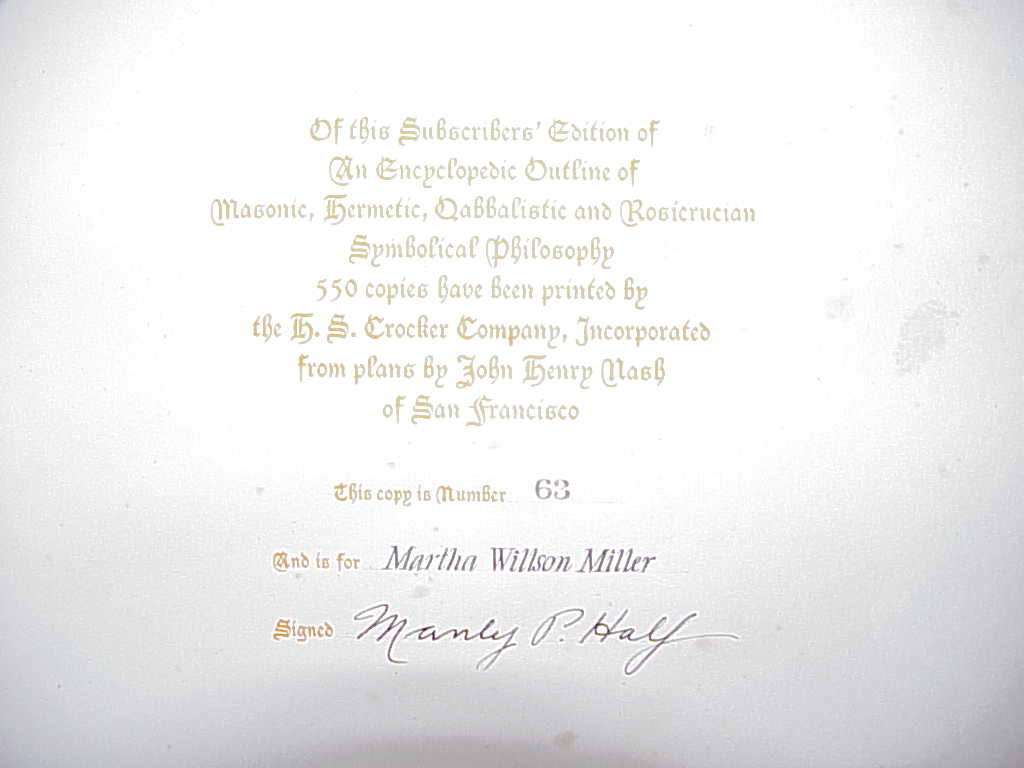 Of this Subscribers' Edition of
An Encyclopedic Outline of
Masonic, Hermetic, Qabbalistic and Rosicrucian
Symbolical Philosophy
550 copies have been printed by
the H. S. Crocker Company, Incorporated
from plans by John Henry Nash
of San Francisco
This copy is Number 63
And is for Martha Willson Miller
Signed Manly P. Hall